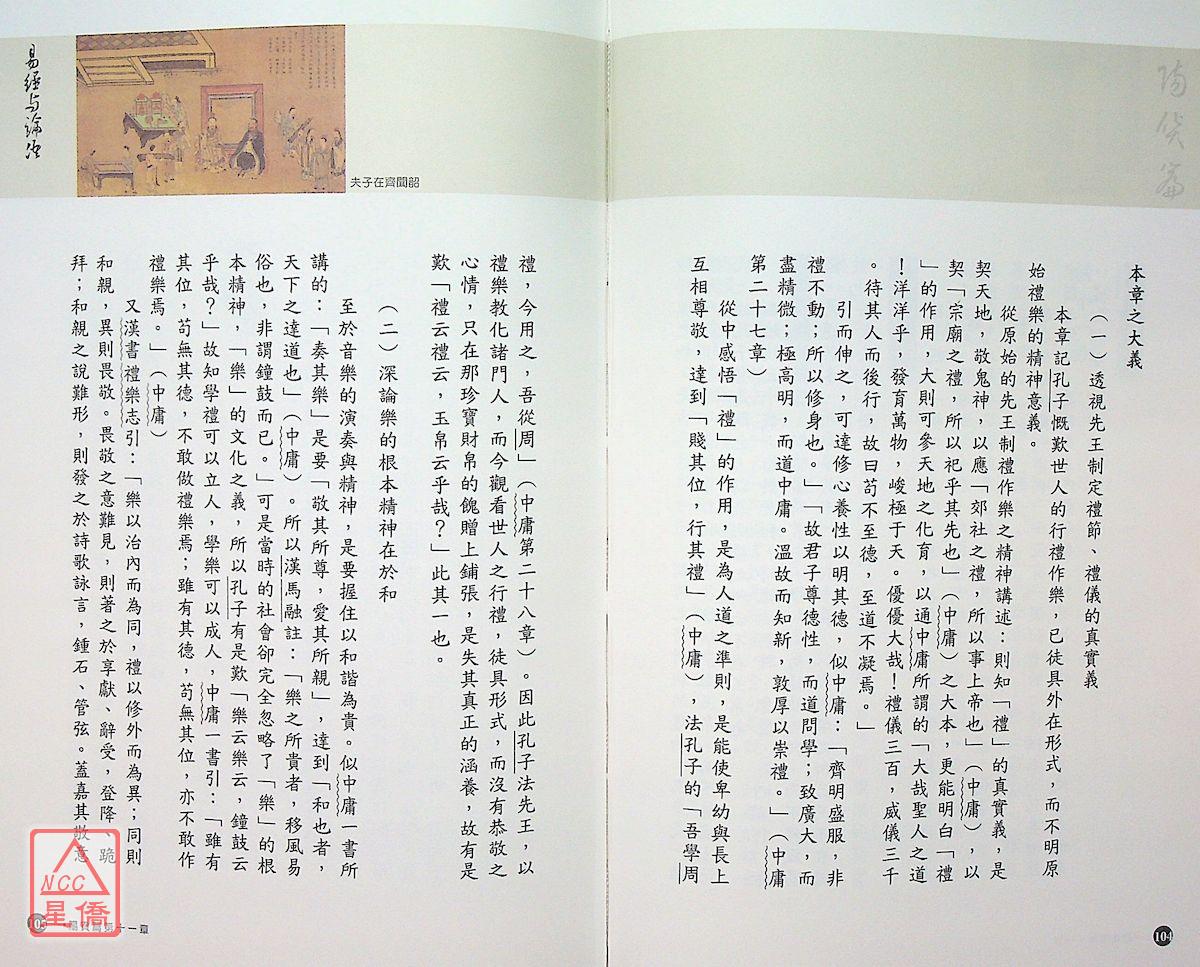 陽貨篇
本章之大義
（一）透視先王制定禮節、禮儀的真實義
本章記孔子慨歎世人的行禮作樂，已徒具外在形式，而不明原
始禮樂的精神意義。
從原始的先王制禮作樂之精神講述：則知「禮」的真實義，是
契天地，敬鬼神，以應「郊社之禮，所以事上帝也」（中庸），以
契「宗廟之禮，所以祀乎其先也」（中庸）之大本，更能明白「禮
」的作用，大則可參天地之化育，以通中庸所謂的「大哉聖人之道
！洋洋乎，發育萬物，峻極于天。優優大哉！禮儀三百，威儀三千
。待其人而後行，故曰苟不至德，至道不凝焉。」
引而伸之，可達修心養性以明其德，似中庸：「齊明盛服，非
禮不動；所以修身也。」「故君子尊德性，而道問學；致廣大，而
盡精微；極高明，而道中庸。溫故而知新，敦厚以崇禮。」（中庸
第二十七章）
從中感悟「禮」的作用，是為人道之準則，是能使卑幼與長上
互相尊敬，達到「賤其位，行其禮」（中庸），法孔子的「吾學周
104
易經与論語
夫子在齊聞韶
禮，今用之，吾從周」（中庸第二十八章）。因此孔子法先王，以
禮樂教化諸門人，而今觀看世人之行禮，徒具形式，而沒有恭敬之
心情，只在那珍寶財帛的餽贈上鋪張，是失其真正的涵養，故有是
歎「禮云禮云，玉帛云乎哉？」此其一也。
（二）深論樂的根本精神在於和
至於音樂的演奏與精神，是要握住以和諧為貴。似中庸一書所
講的：「奏其樂」是要「敬其所尊，愛其所親」，達到「和也者，
天下之達道也」（中庸）。所以漢馬融註：「樂之所貴者，移風易
俗也，非謂鐘鼓而已。」可是當時的社會卻完全忽略了「樂」的根
本精神，「樂」的文化之義，所以孔子有是歎「樂云樂云，鐘鼓云
乎哉？」故知學禮可以立人，學樂可以成人，中庸一書引：「雖有
其位，苟無其德，不敢做禮樂焉；雖有其德，苟無其位，亦不敢作
禮樂焉。」（中庸）
又漢書禮樂志引：「樂以治內而為同，禮以修外而為異；同則
和親，異則畏敬。畏敬之意難見，則著之於享獻、辭受，登降、跪
拜；和親之說難形，則發之於詩歌詠言，鍾石、管弦。蓋嘉其敬意
105
陽貨篇第十一章
NCC
星僑